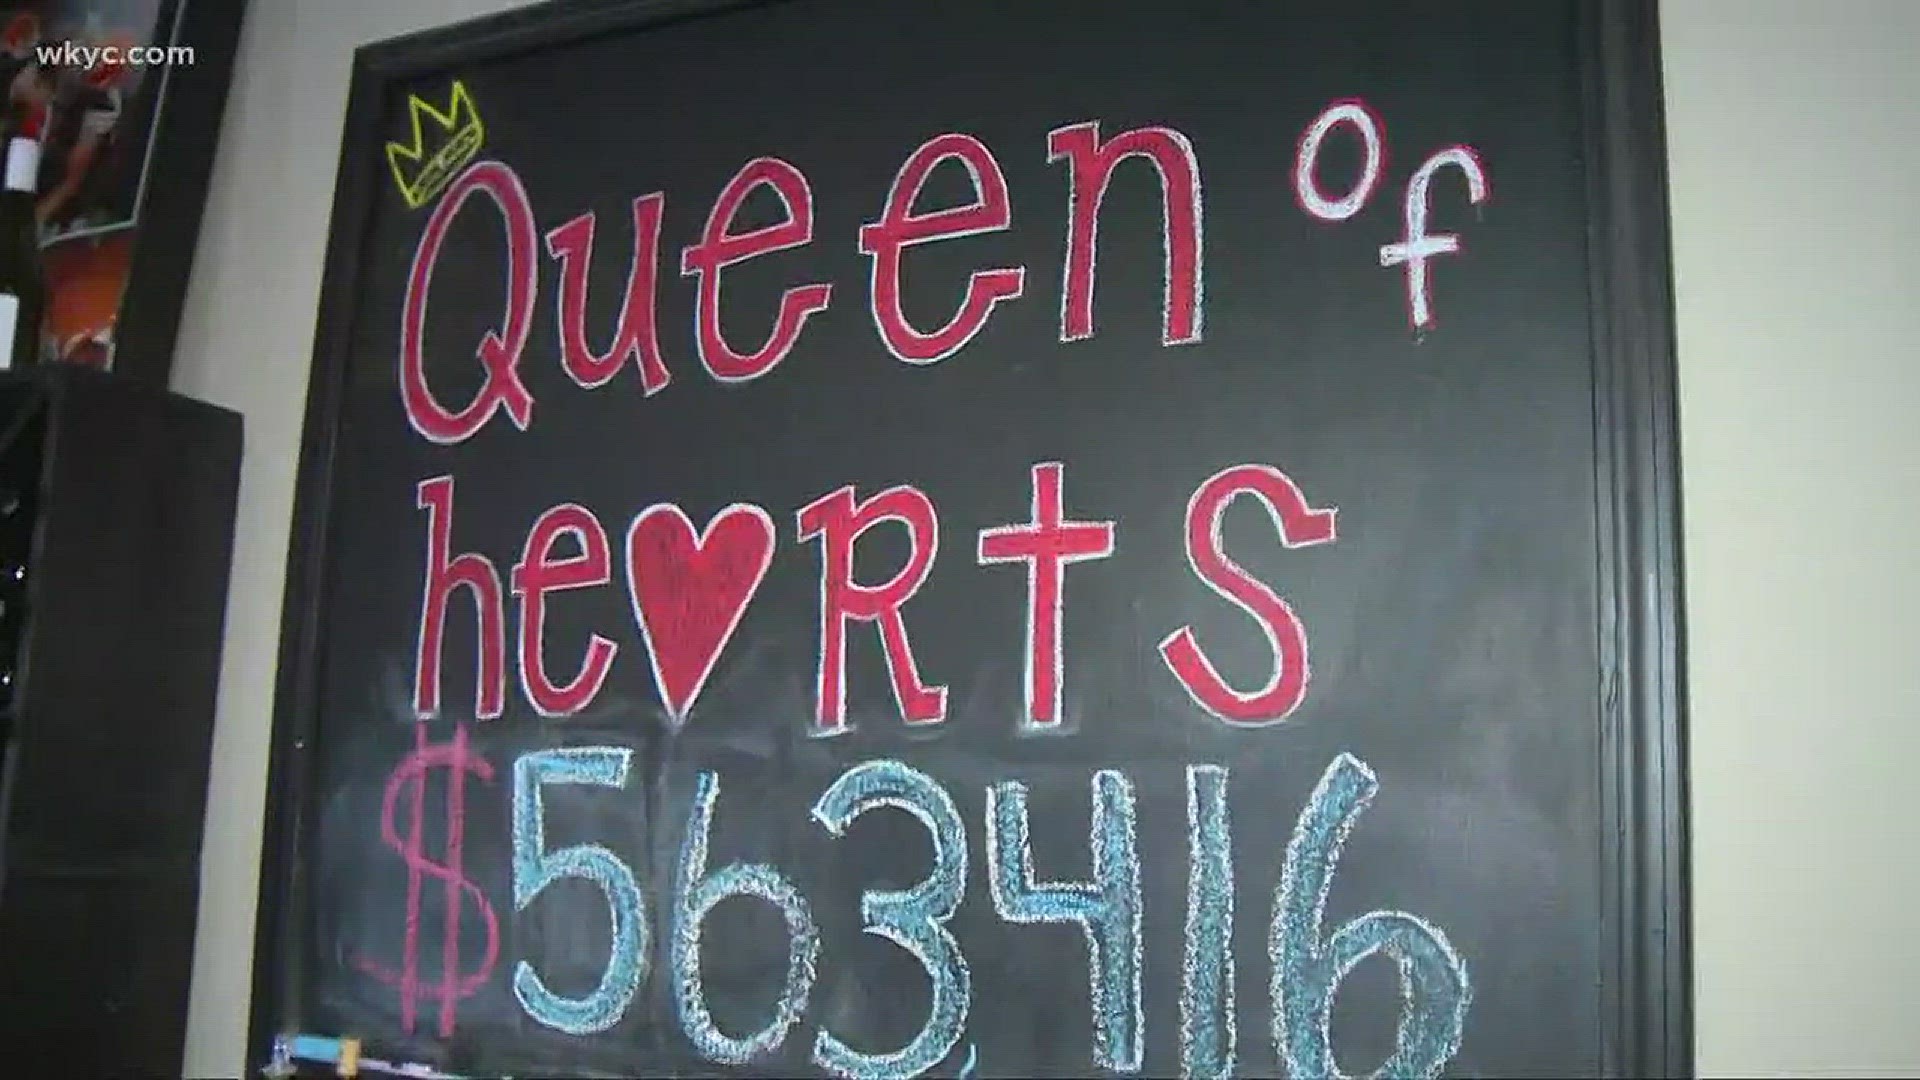 wkyc.com
Queen of
he♥Rts
$563,416